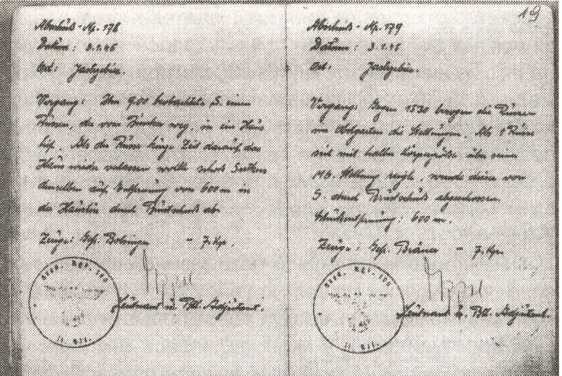 Abschuß-Nr. 178
Datum: 3.1.45
Ort:
Vorgang: Um 9.00 beobachtete S. einen
Russen, der vom Bunker weg, in ein Haus
lief. Als der Russe kurze Zeit darauf das
Haus wieder verlassen wollte schoß Sutkus
denselben auf Entfernung von 600 m in
der Haustür durch Brustschuß ab.
Zeuge: Gefr. - 7. Kp.
Leutnant u. Btl. Adjutant.
19
Abschuß-Nr. 179
Datum: 3.1.45
Ort:
Vorgang: Gegen 1530 bezogen die Russen
im Obstgarten die Stellungen. Als 1 Russe
sich mit halber Körpergröße über seiner
MG. Stellung zeigte, wurde dieser von
S. durch Brustschuß abgeschossen.
Schußentfernung: 600 m.
Zeuge: Gefr. - 7. Kp.
Leutnant u. Btl. Adjutant.